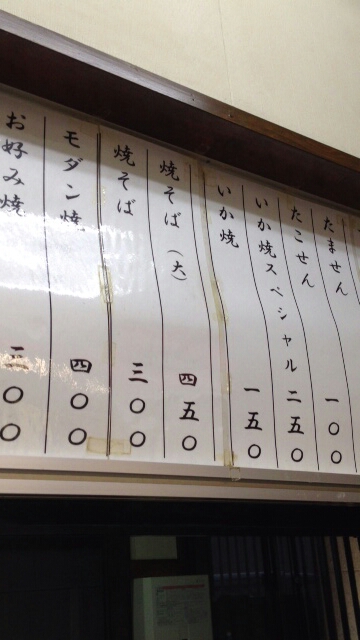 たません
たこせん 一〇〇
いか焼スペシャル 二五〇
いか焼 一五〇
焼そば（大） 四五〇
焼そば 三〇〇
モダン焼 四〇〇
お好み焼 三〇〇